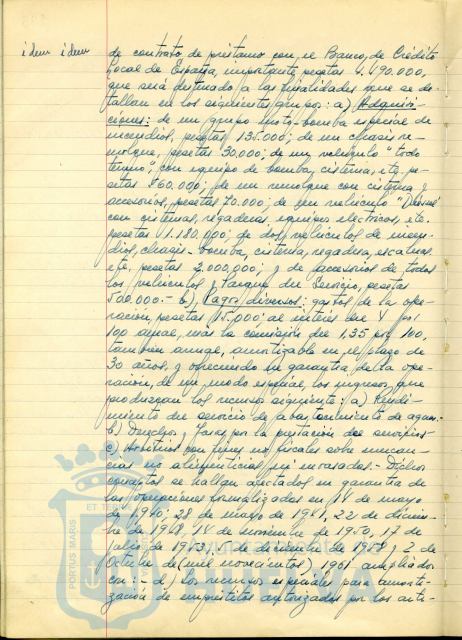 idem idem
de contrato de préstamo con el Banco de Crédito
Local de España, importante pesetas 4.490.000,
que será destinado a las finalidades que se de-
tallan en los siguientes grupos: a) Adquisi-
ciones: de un grupo moto-bomba especial de
incendios, pesetas 135.000; de un chasis re-
molque, pesetas 30.000; de un vehículo "todo
terreno", con equipo de bomba, cisterna, etc. pe-
setas 560.000; de un remolque con cisterna y
accesorios, pesetas 70.000; de un vehículo
con cisternas, regaderas equipos eléctricos, etc.
pesetas 1.180.000; de dos vehículos de incen-
dios, chasis-bomba, cisterna, regadera, escaleras
etc, pesetas 2.000.000; y de accesorios de todos
los vehículos y Parque del Servicio, pesetas
500.000.- b), Pagos diversos: gastos de la ope-
ración, pesetas 15.000; al interés del 4 por
100 anual, más la comisión del 1,35 por 100,
también anual, amortizable en el plazo de
30 años, y ofreciendo en garantía de la ope-
ración, de un modo especial, los ingresos que
produzcan los recursos siguiente: a) Rendi-
miento del servicio de abastecimiento de aguas.
b) Derechos y Tasas por la prestación de servicios-
c) Arbitrios con fines no fiscales sobre mercan-
cías no alimenticias ni envasados.- Dichos
conceptos se hallan afectados en garantía de
las operaciones formalizadas en 14 de mayo
de 1940; 28 de mayo de 1941, 22 de diciem-
bre de 1948, 14 de noviembre de 1950, 17 de
julio de 1953, 5 de diciembre de 1958 y 2 de
Octubre de (mil novecientos) 1961 ampliados
con: - d) los recursos especiales para amorti-
zación de empréstitos autorizados por los artí-
ET TERRAE
PORTUS MARIS